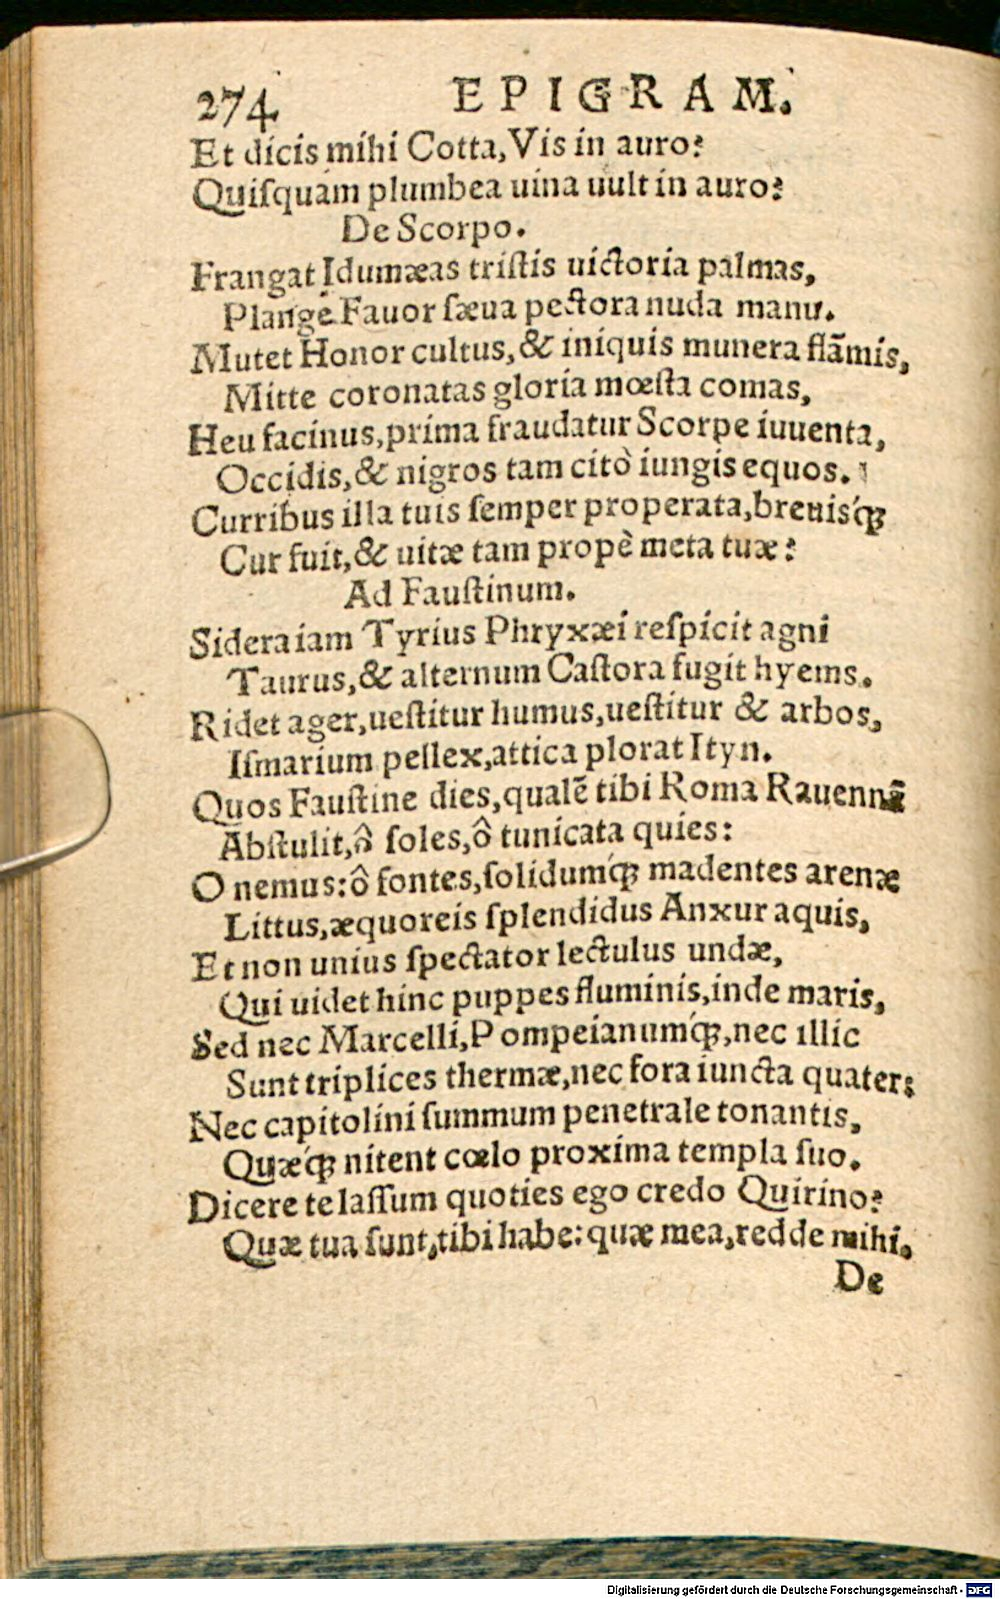 274 EPIGRAM.
Et dicis mihi Cotta, Vis in auro?
Quiſquam plumbea uina uult in auro?
De Scorpo.
Frangat Idumæas triſtis uictoria palmas,
Plange Fauor ſæua pectora nuda manu.
Mutet Honor cultus, & iniquis munera flāmis,
Mitte coronatas gloria mœſta comas,
Heu facinus, prima fraudatur Scorpe iuuenta,
Occidis, & nigros tam citò iungis equos.
Curribus illa tuis ſemper properata, breuisq́ꝫ
Cur fuit, & uitæ tam propè meta tuæ?
Ad Fauſtinum.
Sidera iam Tyrius Phryxæi reſpicit agni
Taurus, & alternum Caſtora fugit hyems.
Ridet ager, ueſtitur humus, ueſtitur & arbos,
Iſmarium pellex, attica plorat Ityn.
Quos Fauſtine dies, qualē tibi Roma Rauennā
Abſtulit, ô ſoles, ô tunicata quies:
O nemus: ô fontes, ſolidumq́ꝫ madentes arenæ
Littus, æquoreis ſplendidus Anxur aquis,
Et non unius ſpectator lectulus undæ,
Qui uidet hinc puppes fluminis, inde maris,
Sed nec Marcelli, Pompeianumq́ꝫ, nec illic
Sunt triplices thermæ, nec fora iuncta quater:
Nec capitolini ſummum penetrale tonantis,
Quæq́ꝫ nitent cœlo proxima templa ſuo.
Dicere te laſſum quoties ego credo Quirino?
Quæ tua ſunt, tibi habe: quæ mea, redde mihi.
De
Digitalisierung gefördert durch die Deutsche Forschungsgemeinschaft - DFG